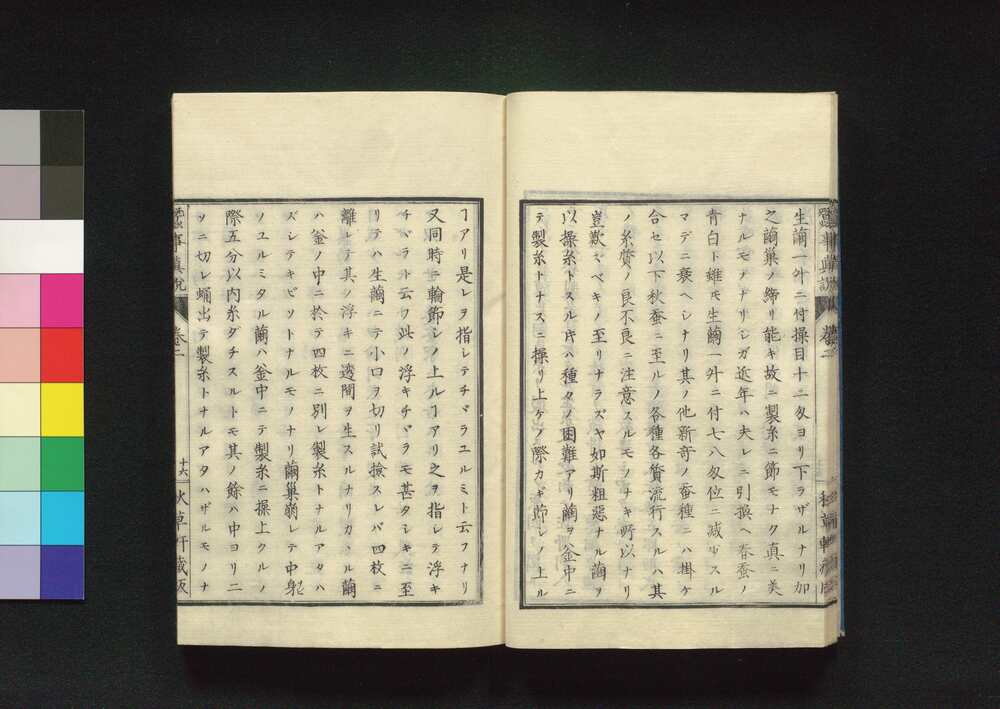 生繭一舛ニ付操目十二匁ヨリ下ラザルナリ加
之繭巣ノ縮リ能キ故ニ製糸ニ節モナク真ニ美
ナルモノナリシガ近年ハ夫レニ引換ヘ春蚕ノ
青白ト雖モ生繭一舛ニ付七八匁位ニ減少スル
マデニ衰ヘシナリ其ノ他新奇ノ蚕種ニハ掛ケ
合セ以下秋蚕ニ至ルノ各種各質流行スルハ其
ノ糸質ノ良不良ニ注意スルモノナキ所以ナリ
豈歎ズベキノ至リナラズヤ如斯粗惡ナル繭ヲ
以テ操糸トスル片ハ種々ノ困難アリ繭ヲ釜中ニ
テ製糸トナスニ操リ上ケノ際カギ節シノ上ル
ヿアリ是レヲ指レテチヾラユルミト云フナリ
又同時ニ輪節シノ上ルヿアリ之ヲ指レテ浮キ
チヾラト云フ此ノ浮キチヾラモ甚タシキニ至
リテハ生繭ニテ小口ヲ切リ試撿スレバ四枚ニ
離レテ其ノ浮キニ透間ヲ生スルナリカヽル繭
ハ釜ノ中ニ於テ四枚ニ別レ製糸トナルアタハ
ズシテキビソトナルモノナリ繭巣崩レテ中躬
ソユルミタル繭ハ釜中ニテ製糸ニ操上クルノ
際五分以内糸ダチスルトモ其ノ餘ハ中ヨリ二
ツニ切レ蛹出テ製糸トナルアタハザルモノナ
蚕事真説
巻二
十六